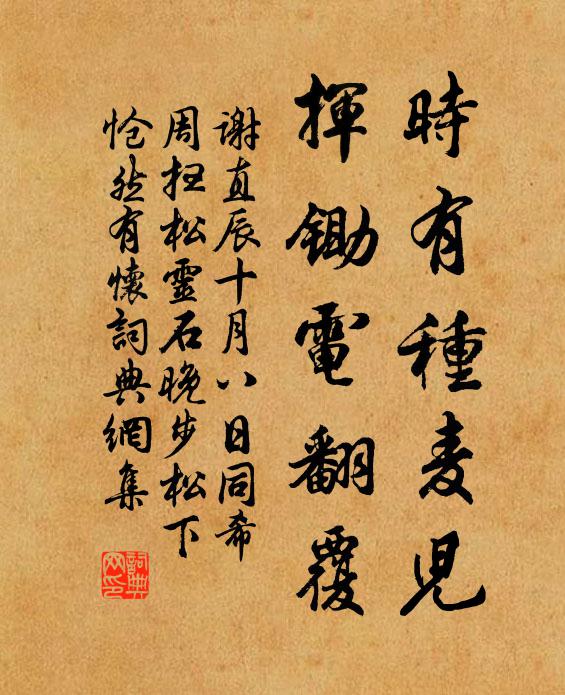 時有種麦児
揮鋤電翻覆
谢直辰十月八日同希
周扫松靈石晚步松下
怆然有懷詞典網集
詞典网印